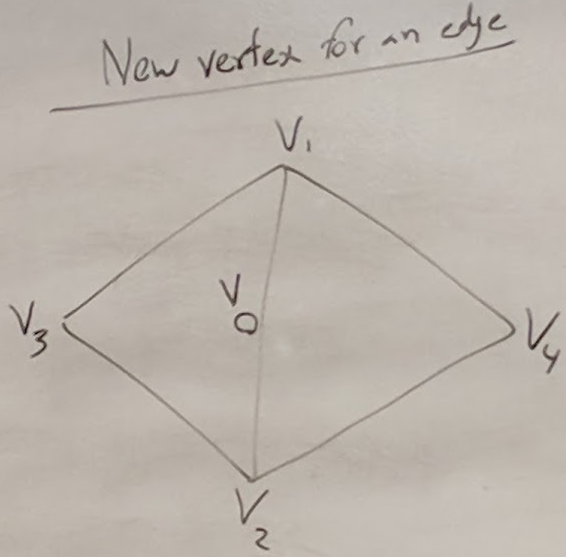 New vertex for an edge
V₁
V
V₃
V₄
V₂